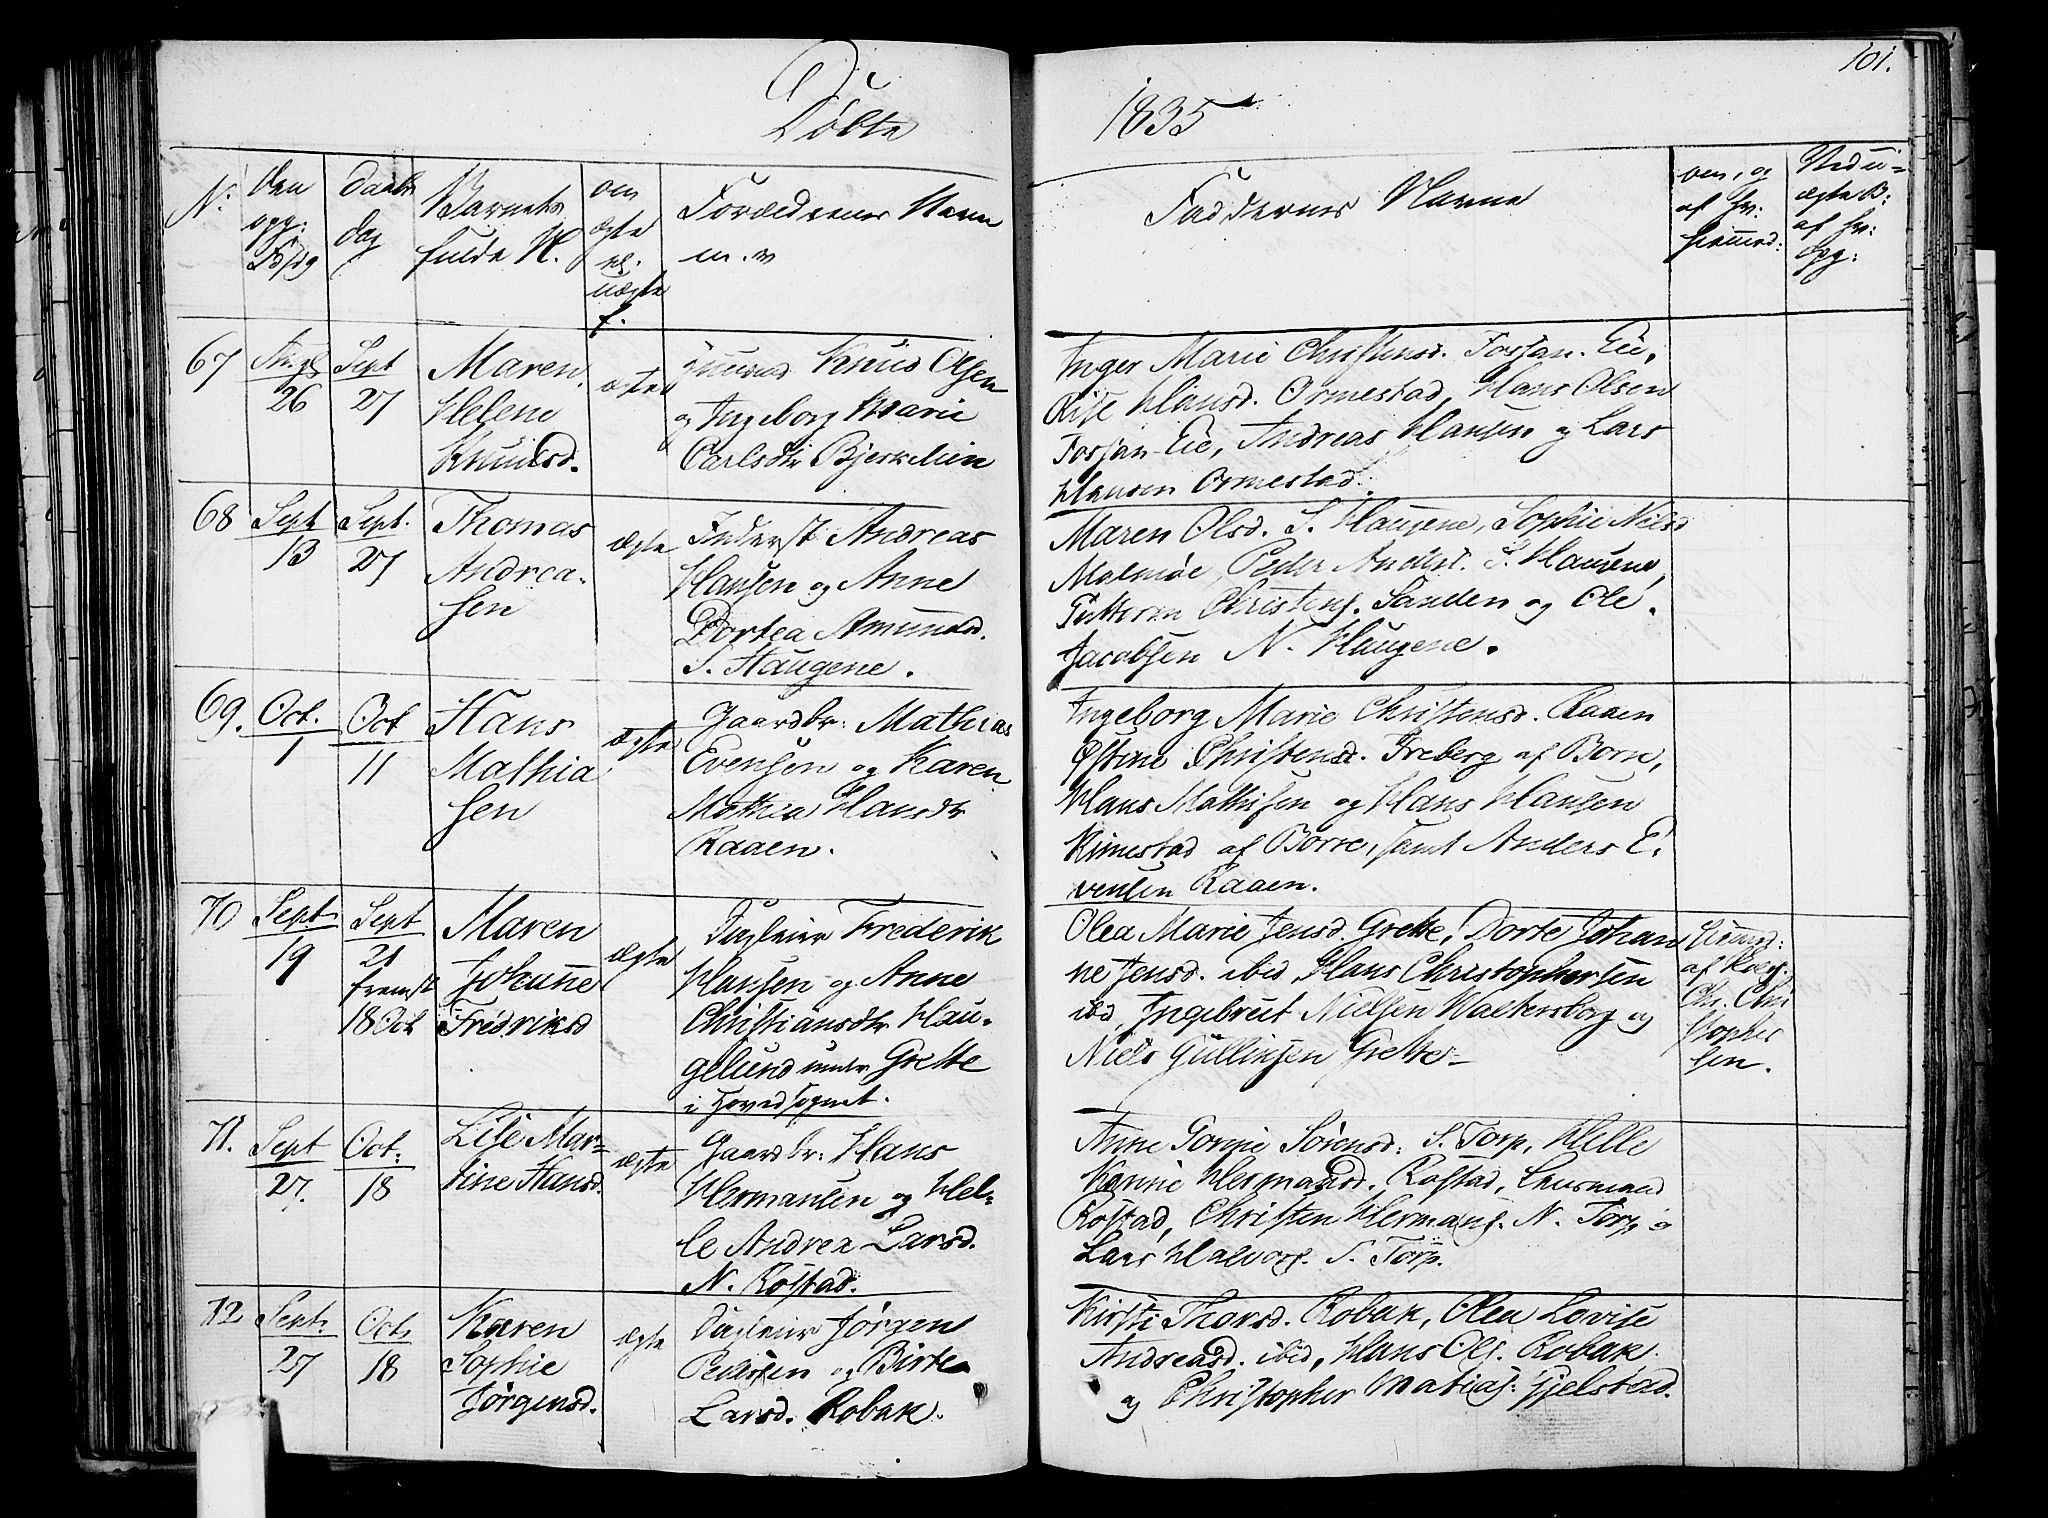 Døbte
1835
101.
N:
den
opg:
Daabs
dag
Barnets
fulde N.
om
ægte
el.
uægte
f.
Forældrenes Navn
m. v
Faddernes Navne
om, og
af hv:
hiemmed:
Ved u-
ægte B:
af hv:
opg:
67
26
Sept
27
Maren
Helene
Knudsd.
ægte
Knud Olsen
og Ingeborg Marie
Carlsdtr Bjerkelien
Inger Marie Christensd. Fossan-Eie,
Hansd. Ormestad, Hans Olsen
Fossan-Eie, Andreas Hansen og Lars
Hansen Ormestad.
68
Sept
13
Sept.
27
Thomas
Andrea-
sen
ægte
Inderst Andreas
Hansen og Anne
Dortea Amundsd.
S. Haugene.
Maren Olsd. S. Haugene, Sophie Nilsd
Malmøe, Peder Anders. S. Haugene,
Guttorm Christens. Sanden og Ole
Jacobsen N. Haugene.
69.
Oct.
1
Oct
11
Hans
Mathia
sen
ægte
Gaardbr: Mathias
Evensen og Karen
Mathea Hansdtr
Raaen.
Ingeborg Marie Christensd. Raaen
Christensd. Freberg af Borre,
Hans Mathisen og Hans Hansen
Kimestad af Borre, samt Anders E-
vensen Raaen.
70
Sept.
19
Sept
21
fremst
18 Oct
Maren
Johanne
Fredriksd
ægte
Dagleier Frederik
Hansen og Anne
Christiansdtr Hau-
gelund under Grette
i Hovedsognet.
Olea Marie Jensd. Grette, Dorte Johan
ne Jensd. ibid, Hans Christophersen
ibd, Ingebret Nielsen Waltersborg og
Niels Gullingsen Grette
Hiemmd:
af
Ch. Chri
stopher
sen.
71.
Sept
27.
Oct.
18
Lise Mar-
tine Hansd.
ægte
Gaardbr: Hans
Hermansen og Hel-
le Andrea Larsd.
N. Rostad.
Anne Gorine Sørensd: S. Torp, Helle
Karine Hermansd. Rostad,
Rostad, Christen Hermans. N. Torp o
Lars Halvors. S. Torp.
72
Sept.
27
Oct.
18
Karen
Sophie
Jørgensd.
ægte
Dagleier Jørgen
Pedersen og Birte
Larsd. Robak.
Kirsti Thorsd. Robak, Olea Lovise
Andreasd. ibid, Hans Ols. Robak
og Christopher Matias: Gjelstad.